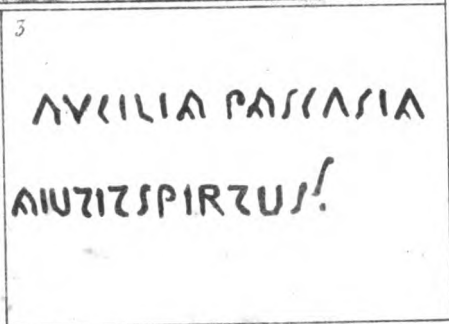 3
AVCILIA PASCASIA
AIUTITSPIRTUS!